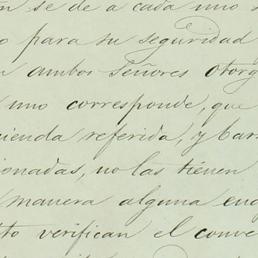 se de a cada uno
para su seguridad
ambos Señores otorg
uno corresponde, que
ienda referida, y
ionadas, no las tienen
manera alguna
to verifican el conve